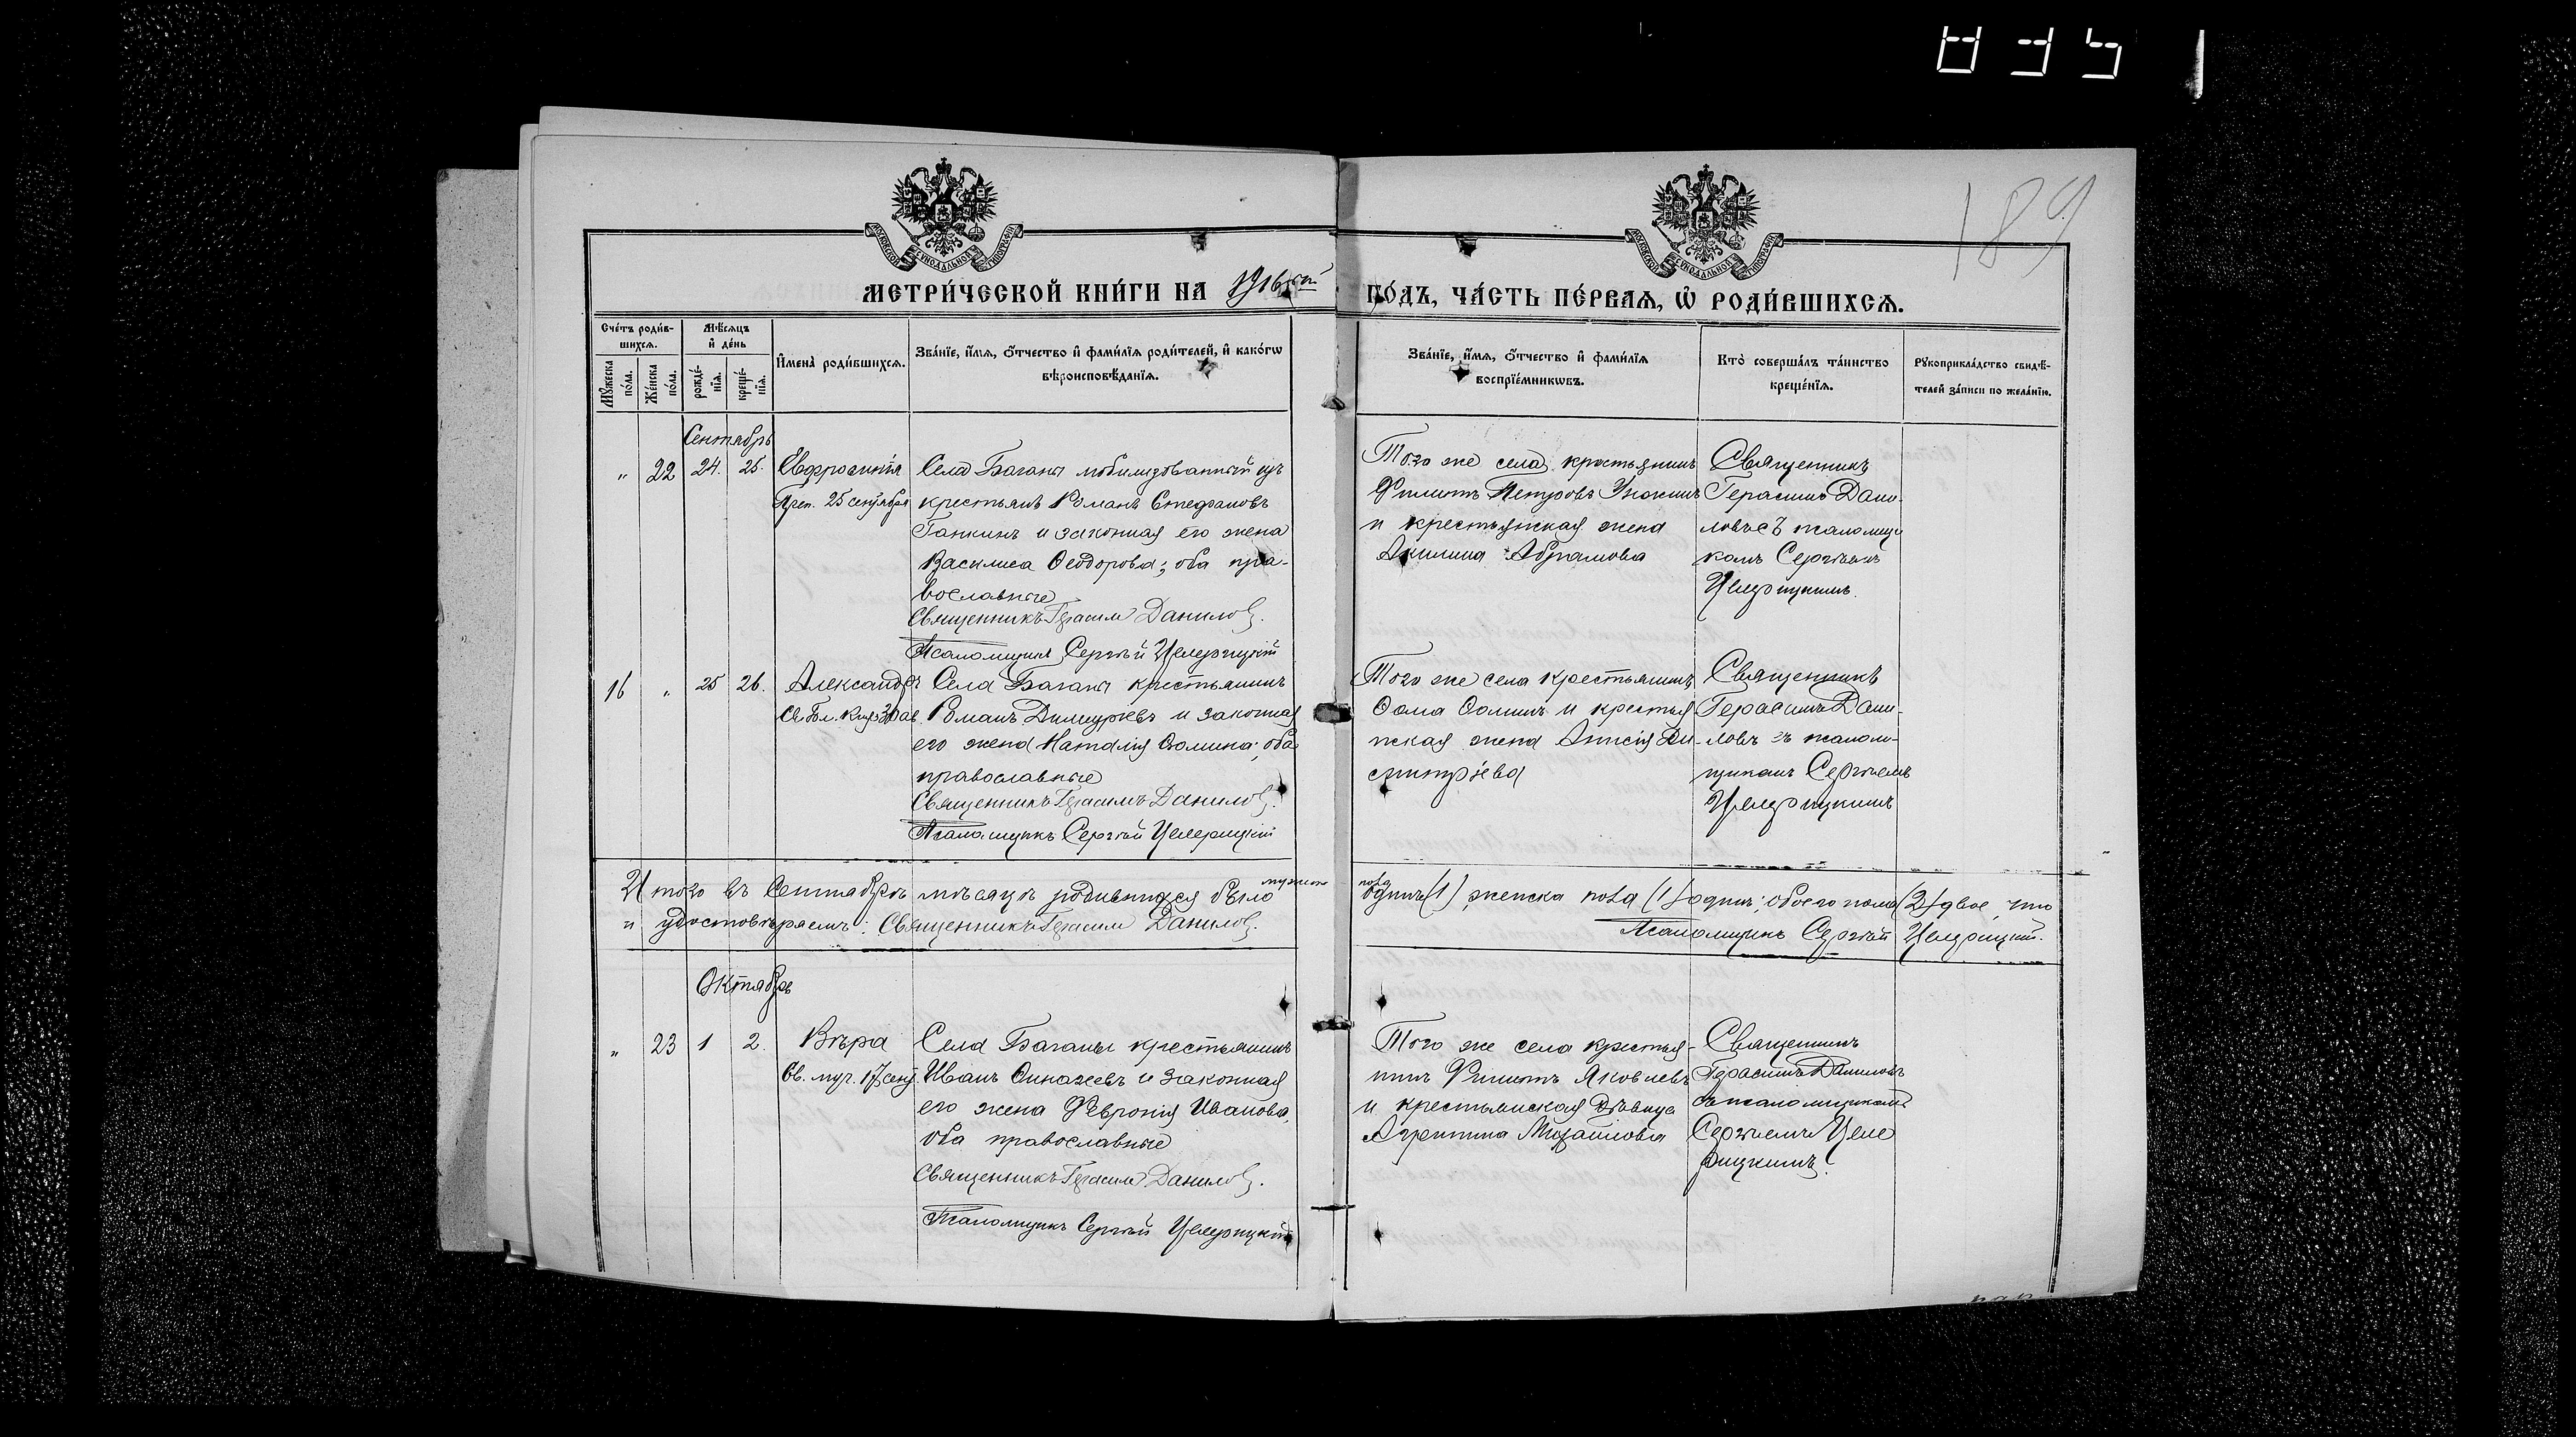 189
МЕТРИ́ЧЕСКОЙ КНИ́ГИ НА 1916й ГО́ДЪ, ЧА́СТЬ ПЕ́РВАЯ, Ѡ҆ РОДИ́ВШИХСЯ.
Сче́тъ роди́в-
шихся.
Мѣ́сяцъ
и҆ де́нь
Мꙋ́жеска
по́ла.
Же́нска
по́ла.
рожде́-
нїя.
креще́-
нїя.
И҆мена̀ роди́вшихся.
Зва́нїе, и҆́мя, ѻ҆́тчество и҆ фами́лїя роди́телей, и҆ како́гѡ
вѣроисповѣ́данїя.
Зва́нїе, и҆́мя, ѻ҆́тчество и҆ фами́лїя
воспрїе́мникѡвъ.
Кто̀ соверша́лъ та́инство
креще́нїя.
Рꙋкоприкла́дство свидѣ́-
телей за́писи по жела́нїю.
Сентябрь
" 22 24. 25. Евфросинія
Преп. 25 сентября
Села Баганы мобилизованный изъ
крестьянъ Романъ Стефановъ
Ганкинъ и законная его жена
Василиса Ѳеодорова; оба пра-
вославные
Священникъ Герасим Данилов.
Псаломщикъ Сергѣй Целерицкій
Того же села крестьянинъ
Филиппъ Петровъ
и крестьянская жена
Акилина Абрамова
Священникъ
Герасимъ Дани-
ловъ съ псаломщи
комъ Сергѣемъ
Целерицкимъ.
16 " 25 26. Александръ
Св. Бл. Кн. 30 ав.
Села Баганы крестьянинъ
Романъ Димитріевъ и законная
его жена Наталія Ѳомина; оба
православные
Священникъ Герасимъ Данилов.
Псаломщикъ Сергѣй Целерицкій
Того же села крестьянинъ
Ѳома Ѳоминъ и крестья
нская жена Анисія Ди-
митріева
Священникъ
Герасимъ Дани-
ловъ съ псалом-
щикомъ Сергѣемъ
Целерицкимъ
Итого въ Сентябрѣ мѣсяцѣ родившихся было мужска пола одинъ (1), женска пола (1) одинъ; обоего пола (2) двое, что
и удостовѣряемъ: Священникъ Герасим Данилов. Псаломщикъ Сергѣй Целерицкій.
Октябрь
" 23 1 2. Вѣра
Св. муч. 17 сент.
Села Баганы крестьянинъ
Иванъ и законная
его жена Февронія Иванова,
оба православные
Священникъ Герасим Данилов.
Псаломщикъ Сергѣй Целерицкій
Того же села крестья-
нинъ Филиппъ Яковлевъ
и крестьянская дѣвица
Агрипина Михайлова
Священникъ
Герасимъ Даниловъ
съ псаломщикомъ
Сергѣемъ Целе
рицкимъ.